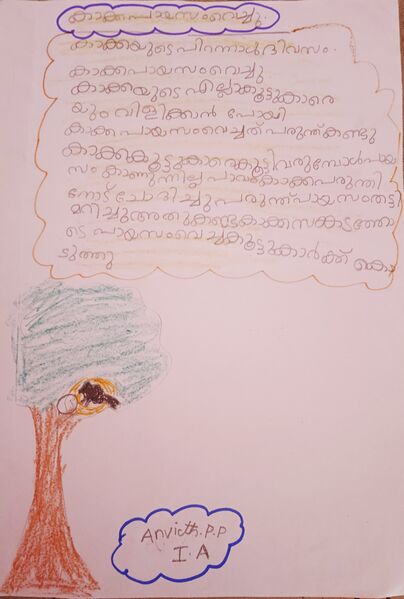 കാക്കപായസംവെച്ചു.
കാക്കയുടെ പിറന്നാൾ ദിവസം.
കാക്കപായസംവെച്ചു
കാക്കയുടെ എല്ലാകൂട്ടുകാരെ
യും വിളിക്കാൻ പോയി
കാക്ക പായസംവെച്ചത് പരുന്ത് കണ്ടു
കാക്കകൂട്ടുകാരെകൂട്ടിവരുമ്പോൾപായ
സം കാണുന്നില്ല പാവംകാക്കപരുന്തി
നോട് ചോദിച്ചു പരുന്ത്പായസംതട്ടി
മറിച്ചുഅതുകണ്ടകാക്കസങ്കടത്തോ
ടെ പായസംവെച്ചുകൂട്ടുകാർക്ക് കൊ
ടുത്തു
Anvicth.P.P
I.A